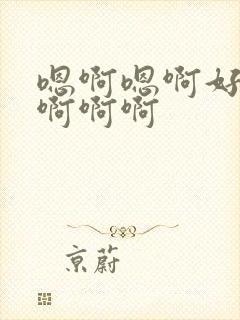 嗯啊嗯啊好
啊啊啊
京蔚